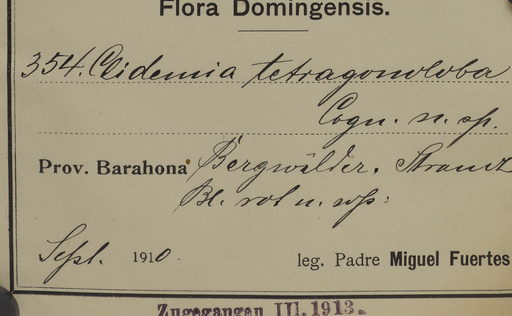 Flora Domingensis.
354. Clidemia tetragonoloba
Cogn. n. sp.
Prov. Barahona Bergwälder. Strauch
Bl. rot u.
Sept. 1910. leg. Padre Miguel Fuertes
Zugegangen III. 1913.